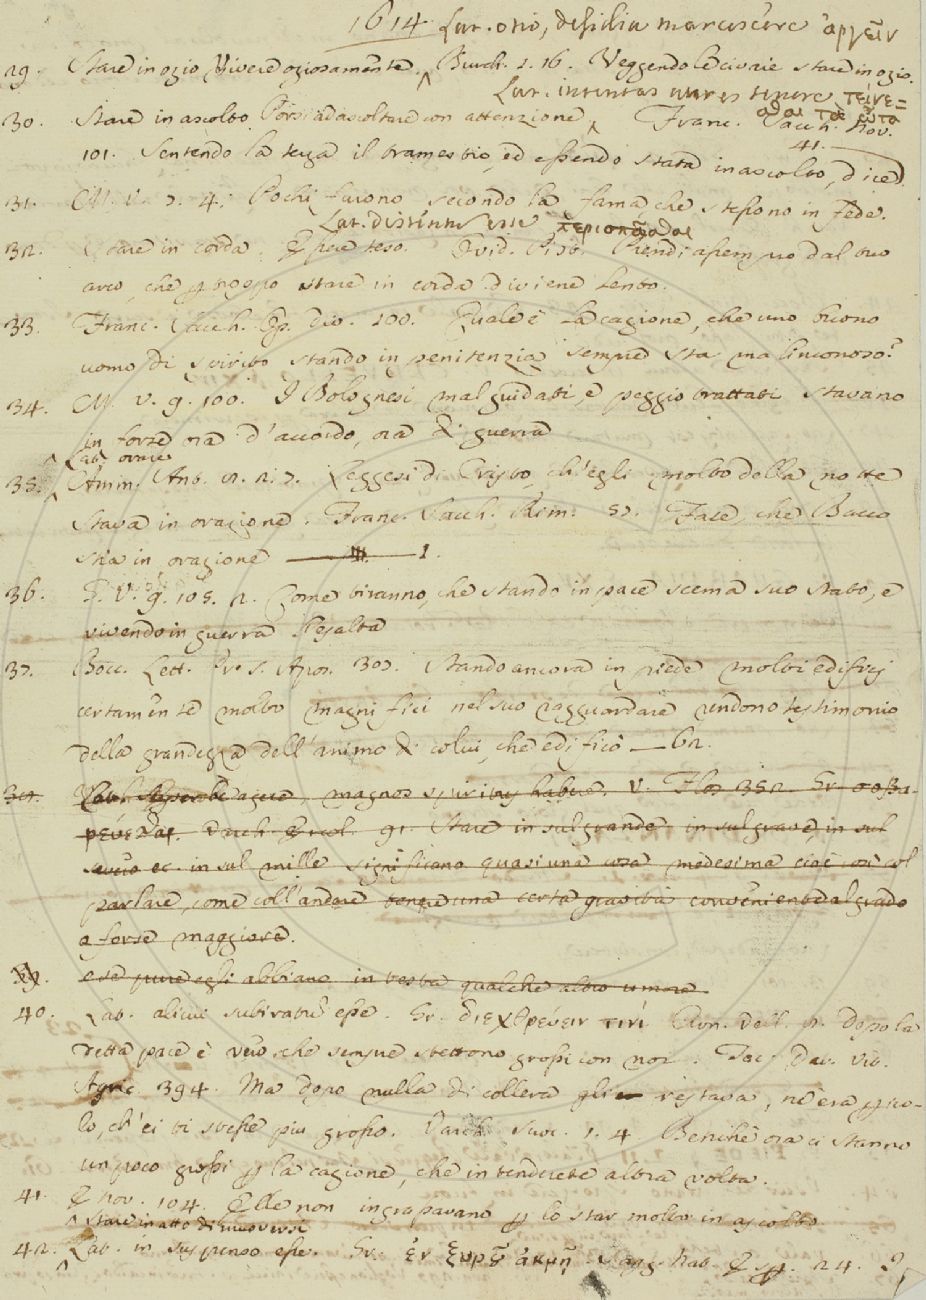 1614 Lat. otio, desidia marcescere ἀργεῖν
29. Stare in ozio Vivere oziosamente. Burch. 1. 16. Veggendo le civaie stare in ozio.
Lat. intentas aures tenere τείνε=
σθαι τὰ ὦτα
30. Stare in ascolto Porsi ad ascoltare con attenzione, Franc. Sacch. nov.
41.
101. Sentendo la terza il tramestio, ed essendo stata in ascolto, dice
31. M. V. 7. 4. Pochi furono secondo la fama, che stessono in fede.
Lat. distentus esse περισπᾶσθαι
32. Stare in corda, Esser teso. Ovid. Pist. Prendi asempro dal tuo
arco, che p troppo stare in corda diviene lento.
33. Franc. Sacch. Op. div. 100. Quale è la cagione, che uno buono
uomo di spirito stando in penitenzia sempre sta malinconoso?
34. M. V. 9. 100. I Bolognesi mal guidati, e peggio trattati stavano
in forse ora d'accordo, ora di guerra
Lat. orare
35. Amm. Ant. 12. 2. 7. Leggesi di Cristo, ch'egli molto della notte
stava in orazione. Franc. Sacch. Rim. 57. Fate, che Bacco
stia in orazione 1.
36. G. V. 9. 105. 2. Come tiranno, che stando in pace scema suo stato, e
vivendo in guerra l'esalta
37. Bocc. Lett. Pr. S. Apos. 307. Stando ancora in piede molti edificj
certamente molto magnifici nel suo ragguardare rendono testimonio
della grandezza dell'animo di colui, che edificò 62.
38. Lat. superbe agere, magnos spiritus habere. V. Flos 352. Gr. σοβα-
ρεύεσθαι. Varch. Ercol. 91. Stare in sul grande in sul grave, in sul
severo ec. in sul mille significano quasi una cosa medesima cioè, sì col
parlare, come coll'andare tenere una certa gravità conveniente al grado
o forse maggiore.
39. e se pure egli abbiano in testa qualche altro umore
40. Lat. alicui subiratum esse. Gr. διεχθρεύειν τινί Cron. Vell. Dopo la
detta pace è vero, che sempre stettono grossi con noi. Tac. Dav. Vit.
Agric. 394. Ma dopo nulla di collera gli restava, nè era p
lo, ch'ei ti stesse più grosso. Varch. Suoc. 1. 4 Benchè ora ci stanno
un poco grossi p la cagione, che intenderete altra volta.
41. E nov. 104. Elle non ingrassavano p lo star molto in ascolto
Stare in atto di muoversi
42. Lat. in suspenso esse. Gr. ἐν ξυροῦ ἀκμῇ Sagg. nat. Esp. 24.